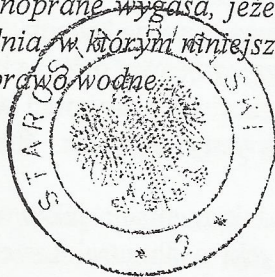 noprane wygasa, jeże
dnia, w którym niniejsz
prawo wodne
STAROSTA
* 2 *